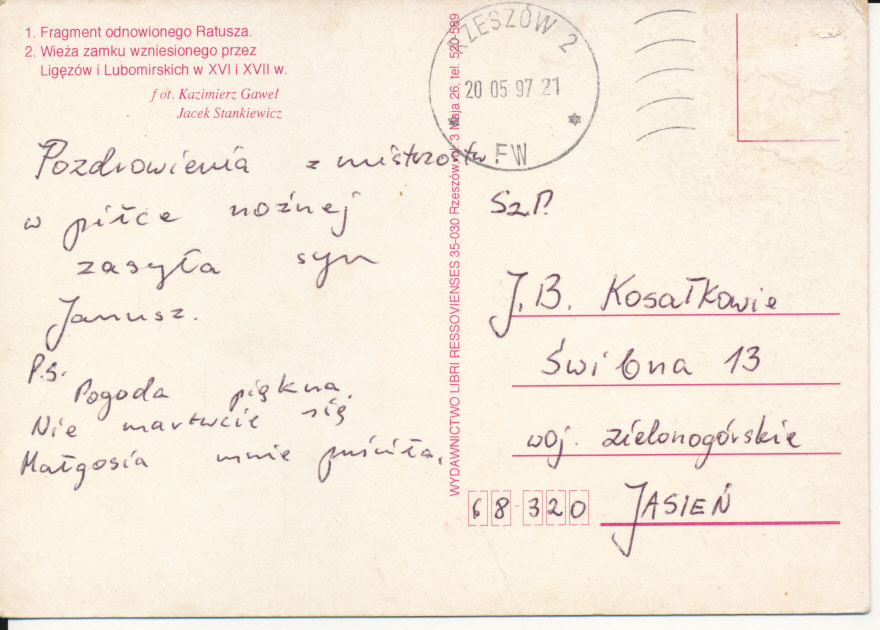 1. Fragment odnowionego Ratusza.
2. Wieża zamku wzniesionego przez
Ligęzów i Lubomirskich w XVI i XVII w.
fot. Kazimierz Gaweł
Jacek Stankiewicz
Pozdrowienia z mistrzostw.
w piłce nożnej
zasyła syn
Janusz.
P.S.
Pogoda piękna.
Nie martwcie się
Małgosia mnie puściła.
WYDAWNICTWO LIBRI RESSOVIENSES 35-030 Rzeszów, ul. 3 Maja 26, tel. 520-589
RZESZÓW 2
20 05 97 21
FW
Sz.P.
J.B. Kosałkowie
Świbna 13
woj. zielonogórskie
68-320 JASIEŃ